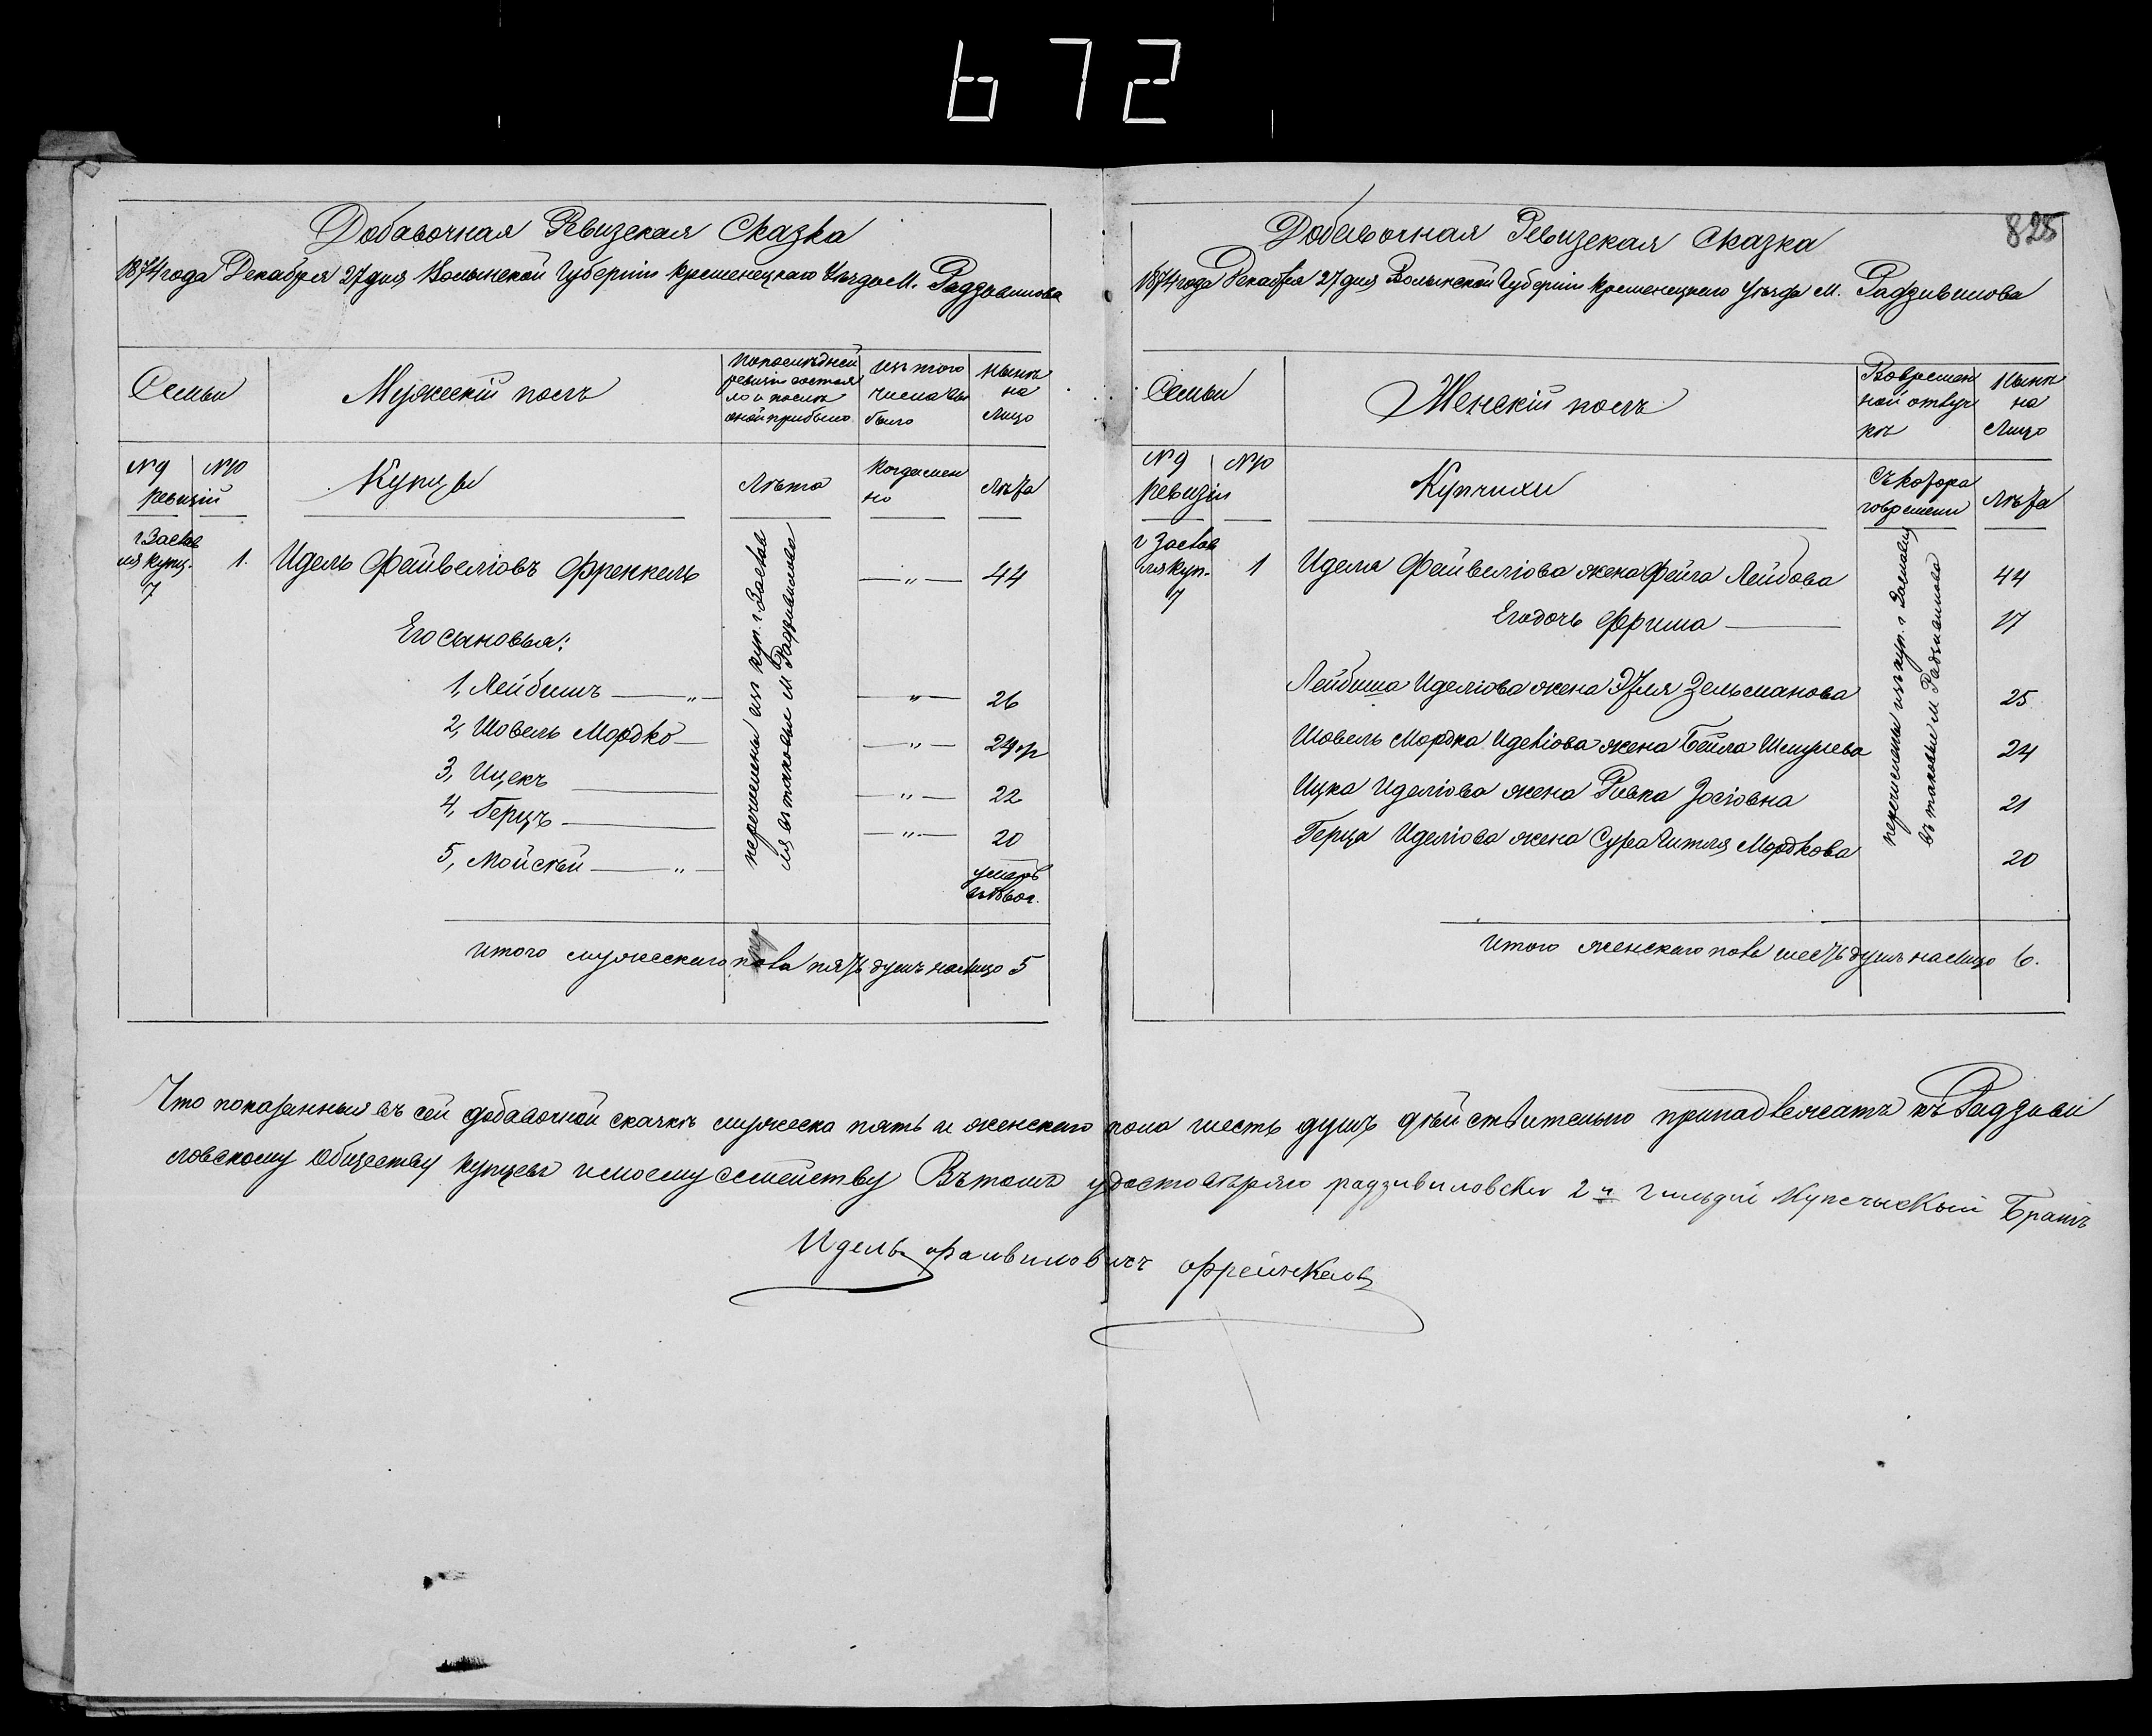 672
Добавочная Ревизская Сказка
1874 года Декабря 27 дня Волынской Губерніи Кременецкаго Уѣзда М. Радзивилова
Семьи
Мужескій полъ
По послѣдней ревизіи состояло и послѣ оной прибыло
Изъ того числа выбыло
Нынѣ на лицо
№ 9 № 10
Ревизій
Купцы
Лѣта
Когда именно
Лѣта
г. Заславля купц. 7
1.
Идель Фейвеліовъ Френкель
перечислены изъ куп. г. Заславля въ таковыи М Радзивилова
— „ — 44
Его сыновья:
1, Лейбишъ — „ — „ — 26
2, Шовель Мордко — — „ — 24
3, Ицекъ — — „ — 22
4, Герцъ — — „ — 20
5, Мойсѣй — „ — умеръ
Итого мужескаго пола пять душъ на лицо 5
825
Добавочная Ревизская Сказка
1874 года Декабря 27 дня Волынской Губерніи Кременецкаго Уѣзда М. Радзивилова
Семьи
Женскій полъ
Во временной отлучкѣ
Нынѣ на Лицо
№ 9 № 10
Ревизіи
Купчихи
Съ котораго времени
Лѣта
г Заславля куп. 7
1
Иделя Фейвеліова жена Фейга Лейбова 44
перечислены изъ куп. г Заславля въ таковыи М Радзивилова
Его дочь Фрима — 17
Лейбиша Иделіова жена Этля Зельманова 25
Шовель Мордка Иделіова жена Бейла Шмулева 24
Ицка Иделіова жена Ривка Зосіовна 21
Герца Иделіова жена Сура Читля Мордкова 20
Итого женскаго пола шесть душъ на лицо 6.
Что показанныя въ сей добавочной скаскѣ мужеска пять и женскаго пола шесть душъ дѣйствительно принадлежатъ къ Радзиви
ловскому обществу купцевъ и моему семейству Въ томъ удостовѣряю радзивиловскій 2 й гильдіи Купеческый Братъ
Идель Файвиловичъ Френкель